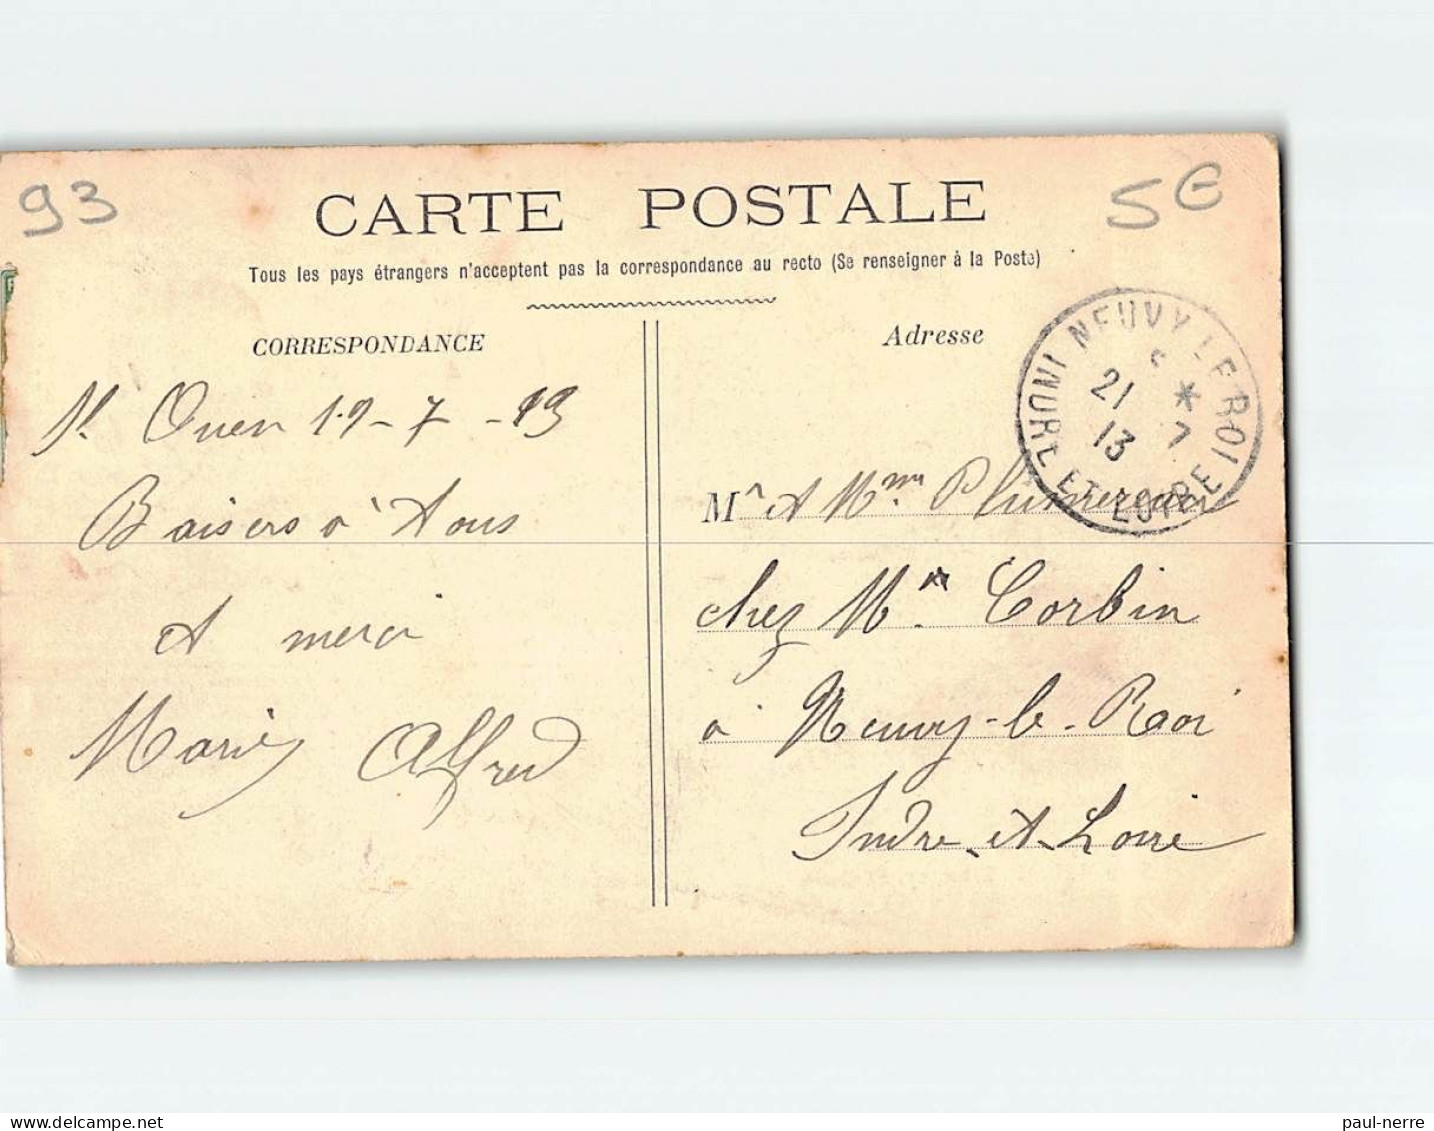 93
5€
CARTE POSTALE
Tous les pays étrangers n'acceptent pas la correspondance au recto (Se renseigner à la Poste)
CORRESPONDANCE
Adresse
NEUVY-LE-ROI
INDRE ET LOIRE
21 7
13
St Ouen 19-7-13
Baisers à tous
et merci
Marie Alfred
Mr et Mme
chez Mme Corbin
à Neuvy-le-Roi
Indre-et-Loire
www.delcampe.net
paul-nerre